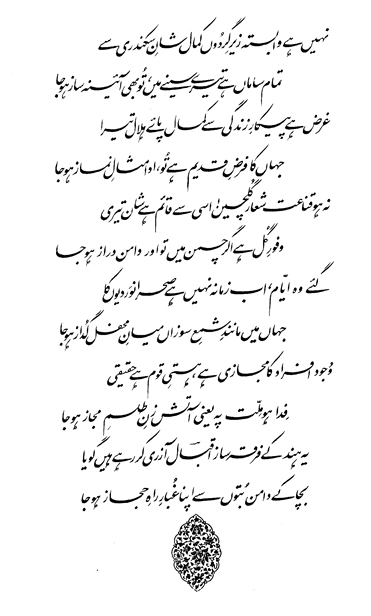 نہیں ہے وابستہ زیرِ گردوں کمال شانِ سکندری سے
تمام ساماں ہے تیرے سینے میں، تُو بھی آئینہ ساز ہو جا
غرض ہے پیکارِ زندگی سے کمال پائے ہلال تیرا
جہاں کا فرضِ قدیم ہے تُو، ادا مثالِ نماز ہو جا
نہ ہو قناعت شعار گلچیں! اسی سے قائم ہے شان تیری
وفورِ گُل ہے اگر چمن میں تو اور دامن دراز ہو جا
گئے وہ ایّام، اب زمانہ نہیں ہے صحرا نوردیوں کا
جہاں میں مانندِ شمعِ سوزاں میانِ محفل گداز ہو جا
وجود افراد کا مجازی ہے، ہستیِ قوم ہے حقیقی
فدا ہو ملّت پہ یعنی آتش زنِ طلسمِ مجاز ہو جا
یہ ہند کے فرقہ ساز اقبالؔ آزری کر رہے ہیں گویا
بچا کے دامن بُتوں سے اپنا غُبارِ راہِ حجاز ہو جا